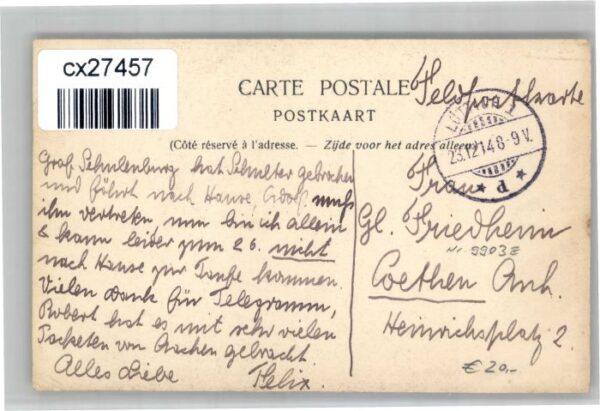 cx27457
CARTE POSTALE
POSTKAART
(Côté réservé à l'adresse. — Zijde voor het adres alleen)
Feldpostkarte
23.12.14 8-9 V.
* d *
Graf Schulenburg hat Schulter gebrochen
und fährt nach Hause, muß
ihn vertreten, nun bin ich allein
& kann leider zum 26. nicht
nach Hause zur Taufe kommen.
Vielen Dank für Telegramm,
Robert hat es mit sehr vielen
Packeten von Aachen gebracht.
Alles Liebe
Felix.
Frau
Gl. Friedheim
Nr 9903E
Coethen Anh.
Heinrichsplatz 2.
€ 20,-